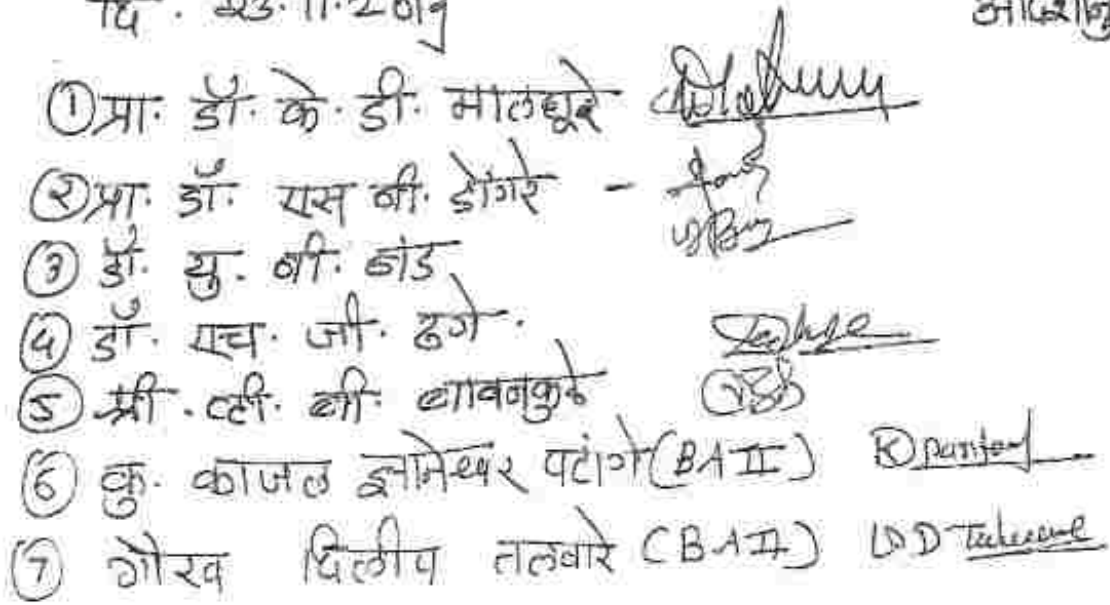 दि. २३.११.२०१९ आदेशानु
① प्रा. डॉ. के. डी. मालधूरे
② प्रा. डॉ. एस बी. डोंगरे -
③ डॉ. यु. बी. बंड
④ डॉ. एच. जी. ढगे.
⑤ श्री. व्ही. बी. बावनकुळे
⑥ कु. काजल ज्ञानेश्वर पटांगे (BA II)
⑦ गौरव दिलीप तलवारे (BA II)